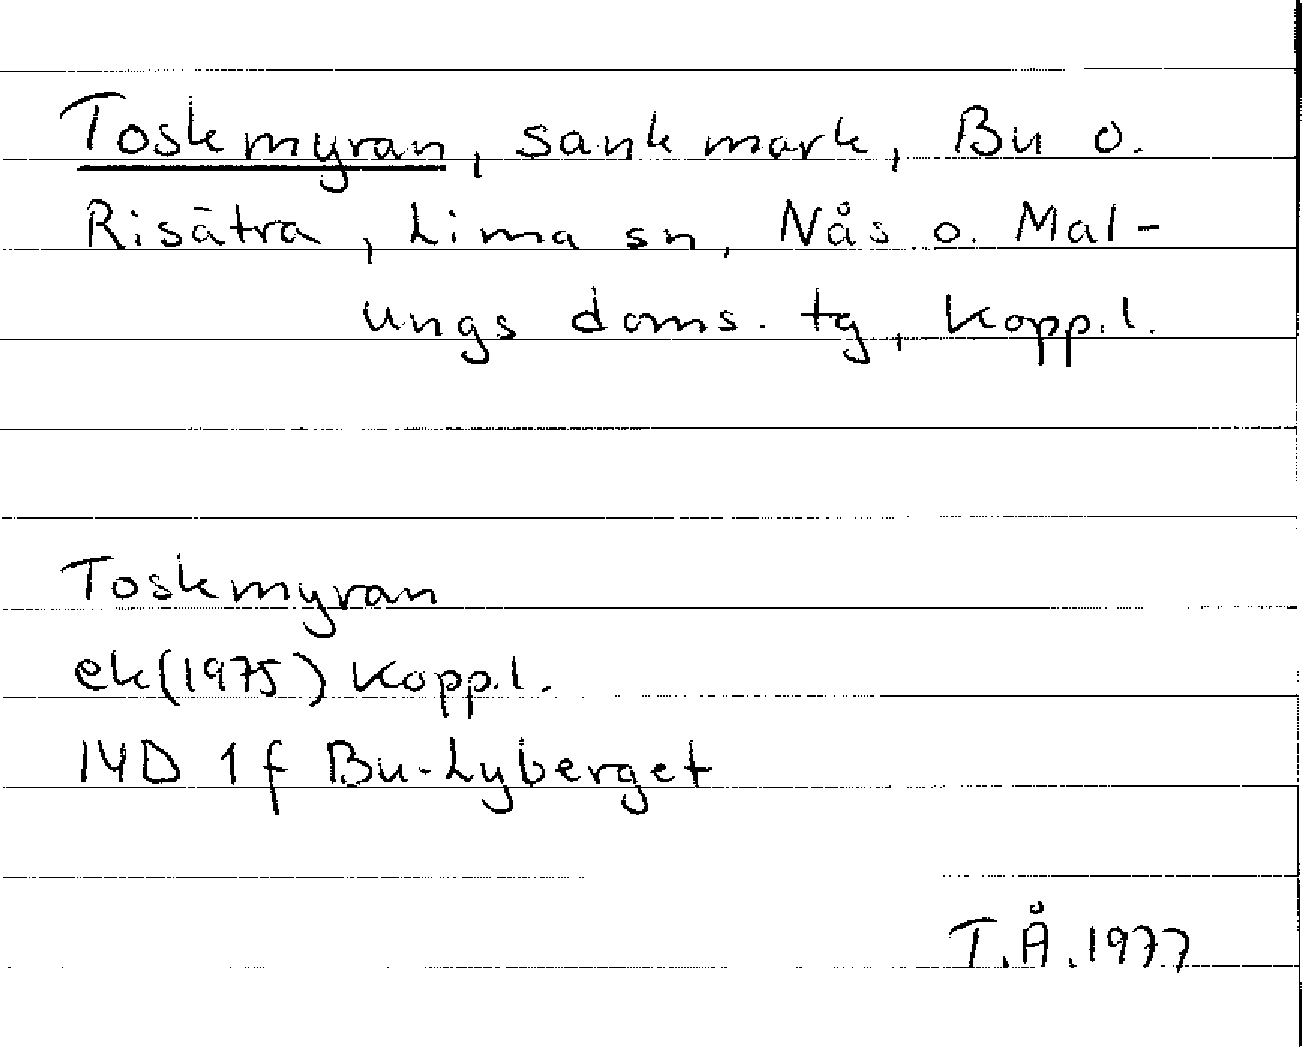 Toskmyran, sank mark, Bu o.
Risätra, Lima sn, Nås o. Mal-
ungs doms. tg, Kopp.l.
Toskmyran
ek(1975) Kopp.l.
14D 1f Bu-Lyberget
T.Å.1977